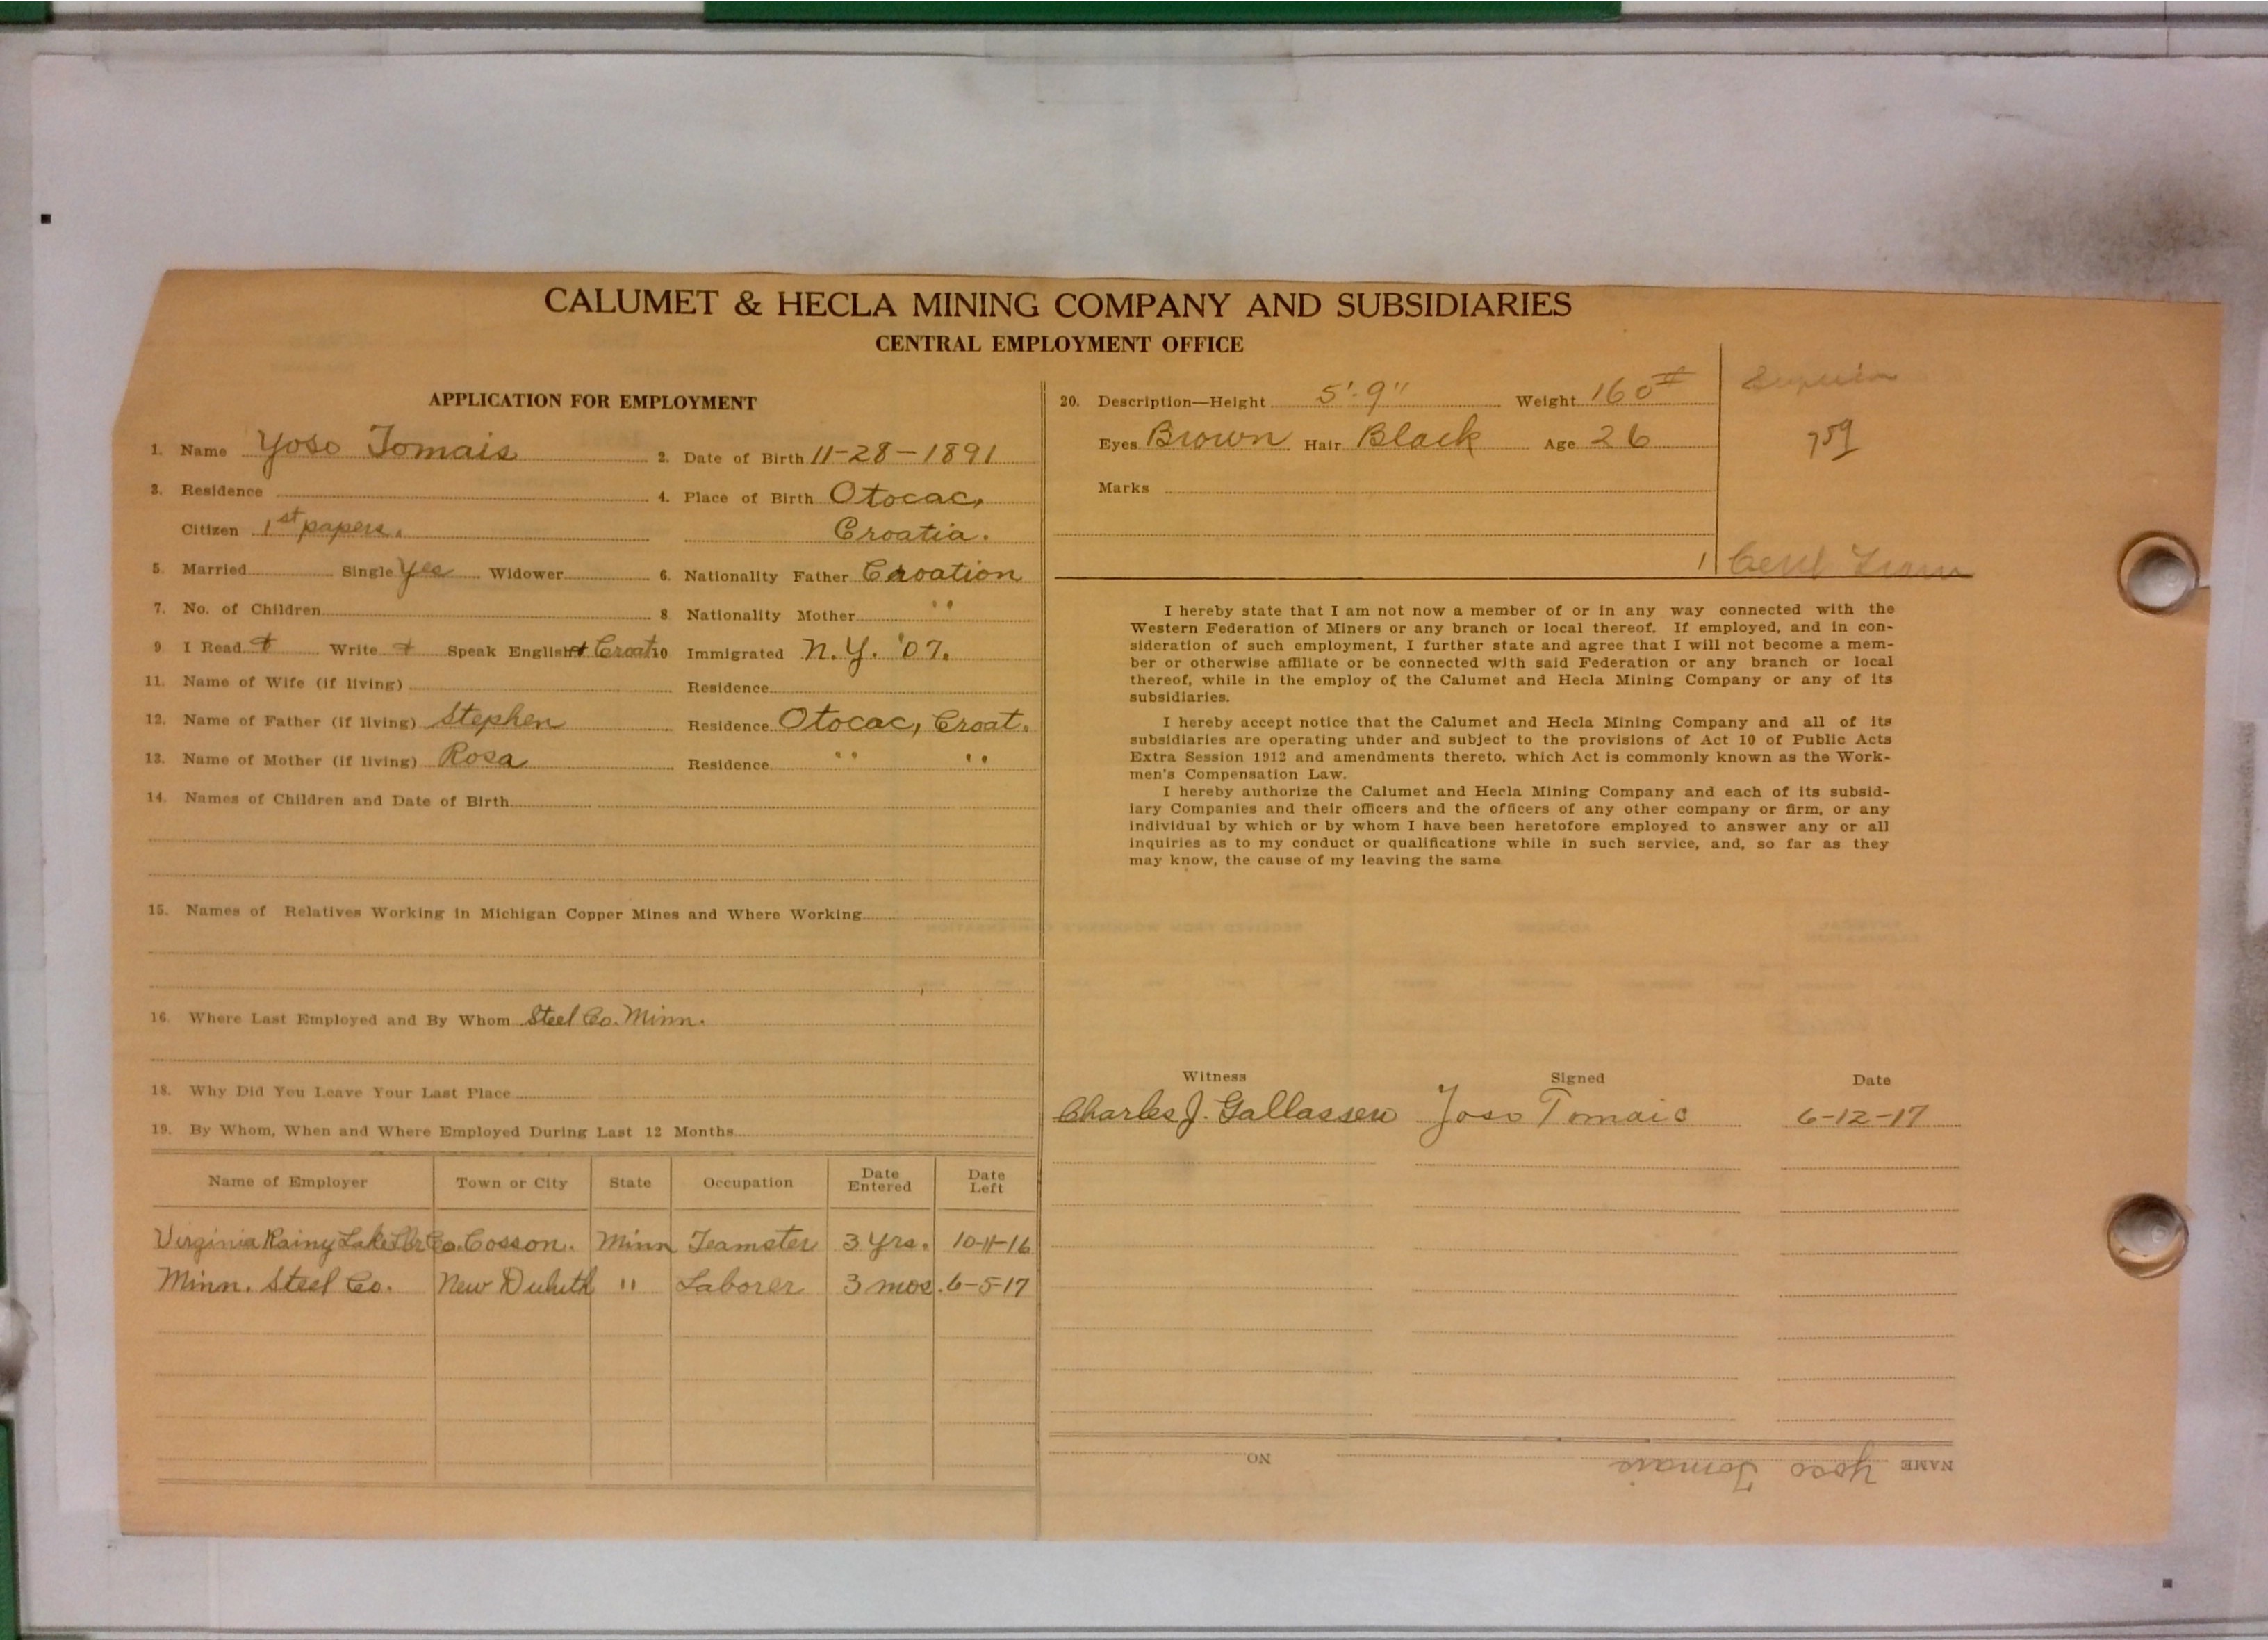 CALUMET & HECLA MINING COMPANY AND SUBSIDIARIES
CENTRAL EMPLOYMENT OFFICE
APPLICATION FOR EMPLOYMENT
1. Name Yoso Tomais 2. Date of Birth 11-28-1891
3. Residence 4. Place of Birth Otocac,
Citizen 1st papers. Croatia.
5. Married Single Yes Widower 6. Nationality Father Croation
7. No. of Children 8 Nationality Mother " "
9 I Read + Write + Speak English + Croat. 10 Immigrated N.Y. '07.
11. Name of Wife (if living) Residence
12. Name of Father (if living) Stephen Residence Otocac, Croat.
13. Name of Mother (if living) Rosa Residence " " " "
14. Names of Children and Date of Birth
15. Names of Relatives Working in Michigan Copper Mines and Where Working
16. Where Last Employed and By Whom Steel Co. Minn.
18. Why Did You Leave Your Last Place
19. By Whom, When and Where Employed During Last 12 Months
Name of Employer Town or City State Occupation Date Entered Date Left
Virginia Rainy Lake Lbr Co. Cosson. Minn Teamster 3 yrs. 10-11-16
Minn. Steel Co. New Duluth " Laborer 3 mos. 6-5-17
20. Description—Height 5'-9" Weight 160#
Eyes Brown Hair Black Age 26
Marks
759
I hereby state that I am not now a member of or in any way connected with the
Western Federation of Miners or any branch or local thereof. If employed, and in con-
sideration of such employment, I further state and agree that I will not become a mem-
ber or otherwise affiliate or be connected with said Federation or any branch or local
thereof, while in the employ of the Calumet and Hecla Mining Company or any of its
subsidiaries.
I hereby accept notice that the Calumet and Hecla Mining Company and all of its
subsidiaries are operating under and subject to the provisions of Act 10 of Public Acts
Extra Session 1912 and amendments thereto, which Act is commonly known as the Work-
men's Compensation Law.
I hereby authorize the Calumet and Hecla Mining Company and each of its subsid-
iary Companies and their officers and the officers of any other company or firm, or any
individual by which or by whom I have been heretofore employed to answer any or all
inquiries as to my conduct or qualifications while in such service, and, so far as they
may know, the cause of my leaving the same
Witness Signed Date
Charles J. Gallassen Joso Tomaic 6-12-17
NAME Yoso Tomaic NO